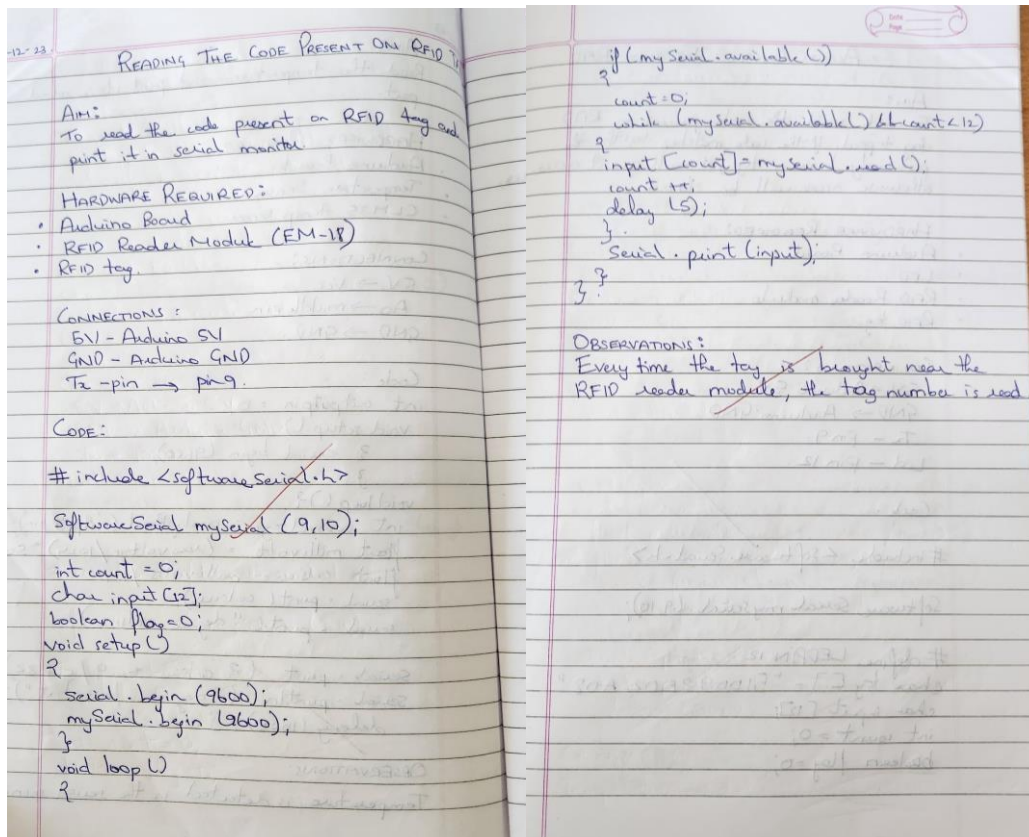 -12-23.
READING THE CODE PRESENT ON RFID
AIM:
To read the code present on RFID tag and
print it in serial monitor
HARDWARE REQUIRED:
• Arduino Board
• RFID Reader Module (EM-18)
• RFID tag.
CONNECTIONS:
5V - Arduino 5V
GND - Arduino GND
Tx - pin → pin 9.
CODE:
# include <softwareSerial.h>
SoftwareSerial mySerial (9,10);
int count = 0;
char input [12];
boolean flag=0;
void setup()
{
serial.begin (9600);
mySerial.begin (9600);
}
void loop ()
{
Date
Page
if (mySerial.available ())
{
count=0;
while (myserial.available() && count<12)
{
input [count]=myserial.read ();
count ++;
delay (5);
}.
Serial.print (input);
}
}
OBSERVATIONS:
Every time the tag is brought near the
RFID reader module, the tag number is read